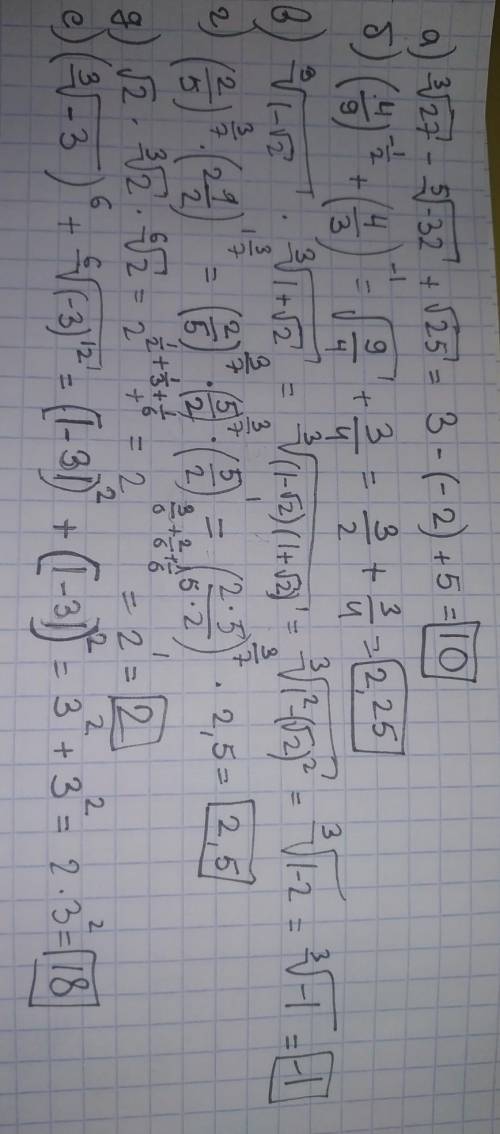 а) ∛27 - ⁵√-32 + √25 = 3 - (-2) + 5 = 10
б) (4/9)^(-1/2) + (4/3)^(-1) = √(9/4) + 3/4 = 3/2 + 3/4 = 2,25
в) ∛(1-√2) · ∛(1+√2) = ∛((1-√2)(1+√2)) = ∛(1²-(√2)²) = ∛(1-2) = ∛-1 = -1
г) (2/5)^(3/7) · (2 1/2)^(1 3/7) = (2/5)^(3/7) · (5/2)^(3/7) · (5/2)^1 = (2·5/5·2)^(3/7) · 2,5 = 2,5
д) √2 · ∛2 · ⁶√2 = 2^(1/2+1/3+1/6) = 2^(3/6+2/6+1/6) = 2^1 = 2
е) (∛-3)^6 + ⁶√((-3)^12) = (|-3|)² + (|-3|)² = 3² + 3² = 2·3² = 18